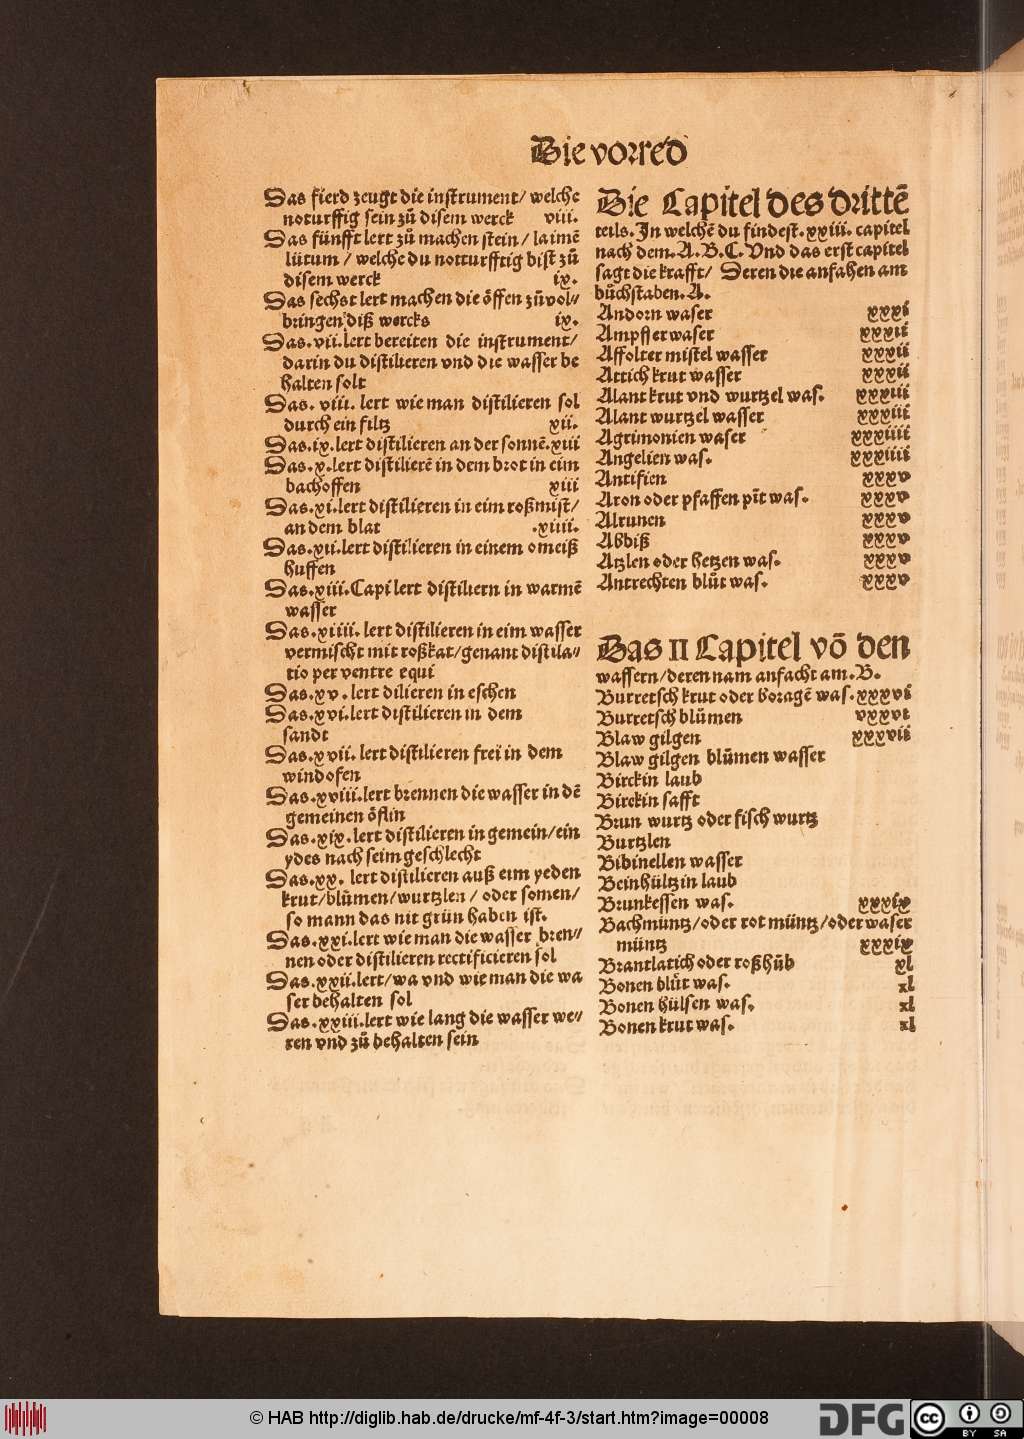 Die vorred
Das fierd zeugt die instrument/ welche
noturffig sein zů disem werck viii.
Das fünfft lert zů machen stein/ laimē
lütum / welche du notturfftig bist zů
disem werck ix.
Das sechst lert machen die öffen zůvol⸗
bringen diß wercks ix.
Das.vii.lert bereiten die instrument/
darin du distilieren vnd die wasser be
halten solt
Das. viii. lert wie man distilieren sol
durch ein filtz xii.
Das.ix.lert distilieren an der sonnē.xiii
Das.x.lert distilierē in dem brot in eim
bachoffen xiii
Das.xi.lert distilieren in eim roßmist/
an dem blat .xiiii.
Das.xii.lert distilieren in einem omeiß
huffen
Das.xiii.Capi lert distiliern in warmē
wasser
Das.xiiii. lert distilieren in eim wasser
vermischt mit roßkat/genant distila⸗
tio per ventre equi
Das.xv.lert dilieren in eschen
Das.xvi.lert distilieren in dem
sandt
Das.xvii. lert distilieren frei in dem
windofen
Das.xviii.lert brennen die wasser in dē
gemeinen öflin
Das.xix.lert distilieren in gemein/ein
ydes nach seim geschlecht
Das.xx. lert distilieren auß eim yeden
krut/blůmen/wurtzlen / oder somen/
so mann das nit grün haben ist.
Das.xxi.lert wie man die wasser bren⸗
nen oder distilieren rectificieren sol
Das.xxii.lert/wa vnd wie man die wa
ser behalten sol
Das.xxiii.lert wie lang die wasser we⸗
ren vnd zů behalten sein
Die Capitel des drittē
teils.In welchē du findest.xxiii. capitel
nach dem.A.B.C.Vnd das erst capitel
sagt die krafft/ Deren die anfahen am
bůchstaben.A.
Andorn waser xxxi
Ampffer waser xxxii
Affolter mistel wasser xxxii
Attich krut wasser xxxii
Alant krut vnd wurtzel was. xxxiii
Alant wurtzel wasser xxxiii
Agrimonien waser xxxiiii
Angelien was. xxxiiii
Antifien xxxv
Aron oder pfaffen pīt was. xxxv
Alrunen xxxv
Abbiß xxxv
Atzlen oder hetzen was. xxxv
Antrechten blůt was. xxxv
Das II Capitel vō den
wassern/deren nam anfacht am.B.
Burretsch krut oder boragē was.xxxvi
Burretsch blůmen vxxvi
Blaw gilgen xxxvii
Blaw gilgen blůmen wasser
Birckin laub
Birckin safft
Brun wurtz oder fisch wurtz
Burtzlen
Bibinellen wasser
Beinhültzin laub
Brunkessen was. xxxix
Bachmüntz/oder rot müntz/oder waser
müntz xxxix
Brantlatich oder roßhůb xl
Bonen blůt was. xl
Bonen hülsen was. xl
Bonen krut was. xl
© HAB http://diglib.hab.de/drucke/mf-4f-3/start.htm?image=00008
DFG
cc
BY SA